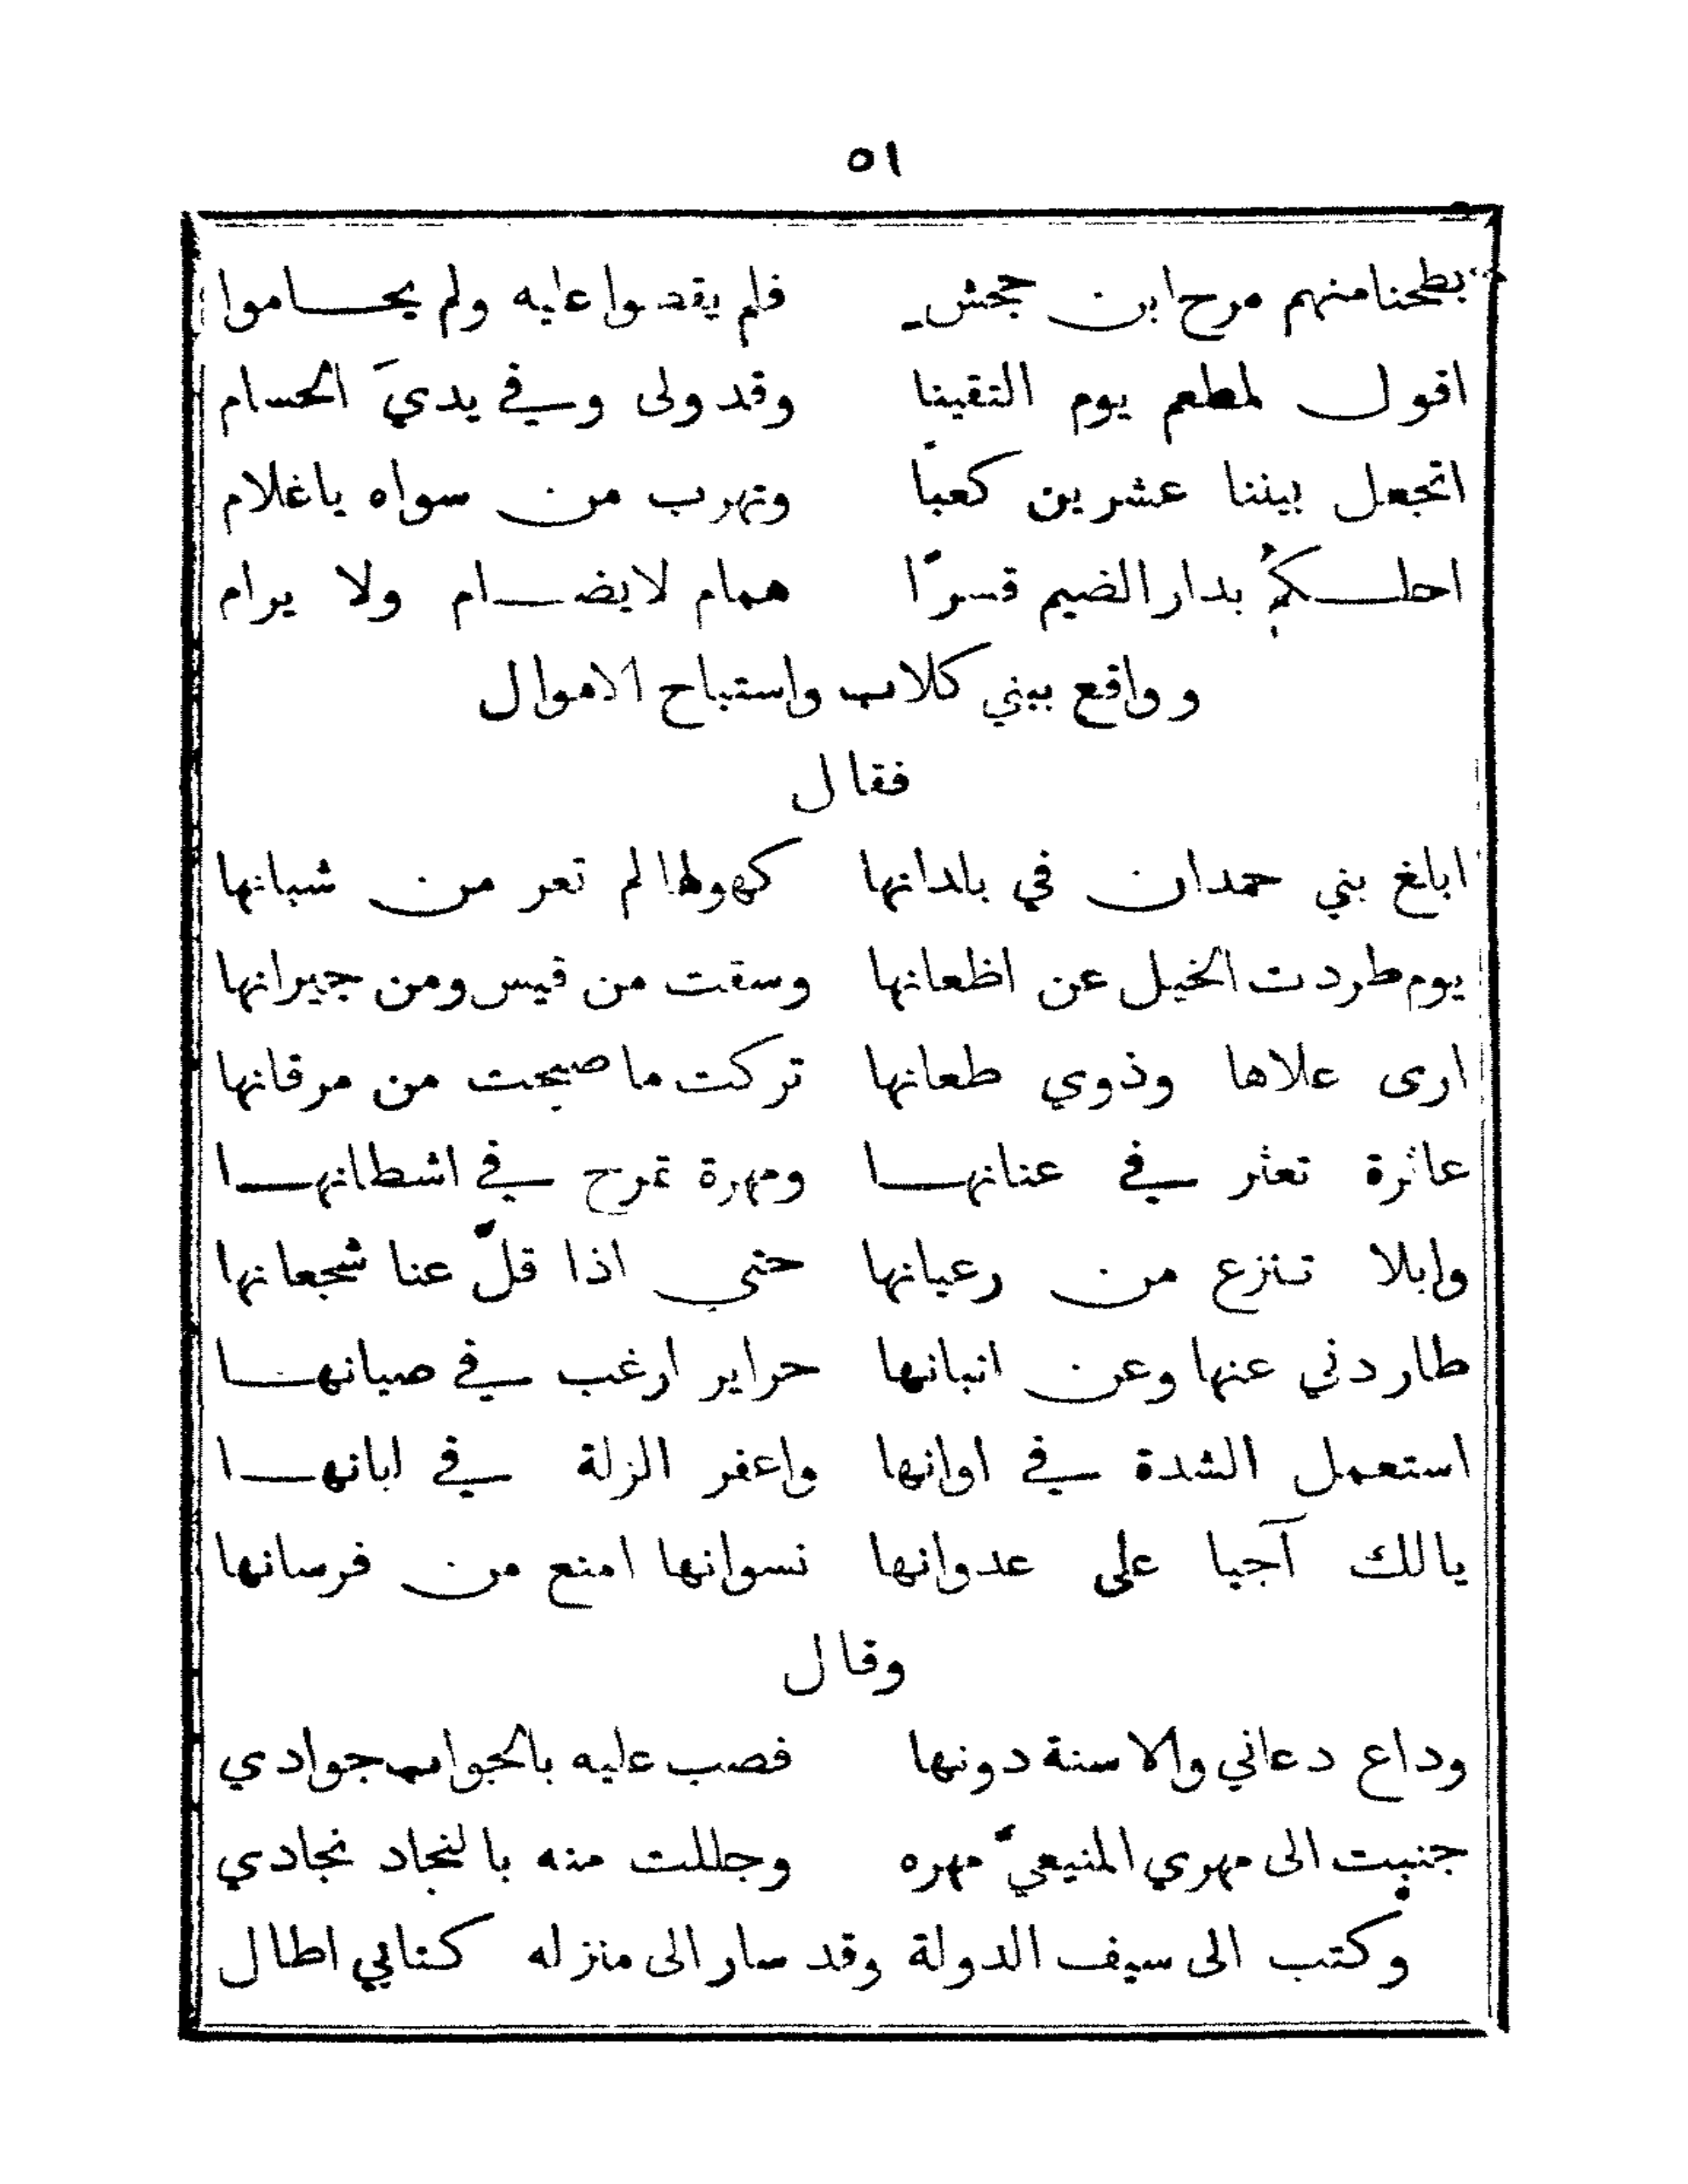 ٥١
بطحنا منهم مرح ابن جحش فلم يقدوا عليه ولم يحاموا
اقول لمطعم يوم التقينا وقد ولى وفي يديَ الحسام
اتجعل بيننا عشرين كعبًا وتهرب من سواه ياغلام
احلكمُ بدار الضيم قسرًا همام لايضام ولا يرام
وواقع ببني كلاب واستباح الاموال
فقال
ابلغ بني حمدان في بلدانها كهولها لم تعر من شبانها
يوم طردت الخيل عن اظعانها وسقت من قيس ومن جيرانها
ارى علاها وذوي طعانها تركت ما صبحت من مرقانها
عاثرة تعثر في عنانها ومهرة تمرح في اشطانها
وابلا تنزع من رعيانها حتى اذا قلّ عنا شجعانها
طاردني عنها وعن اتبانها حراير ارغب في صيانها
استعمل الشدة في اوانها واعفر الزلة في ابانها
يالك آجيا على عدوانها نسوانها امنع من فرسانها
وقال
وداع دعاني والاسنة دونها فصب عليه بالجواب جوادي
جنبت الى مهري المنيعيّ مهره وجللت منه بالنجاد نجادي
وكتب الى سيف الدولة وقد سار الى منزله كتابي اطال